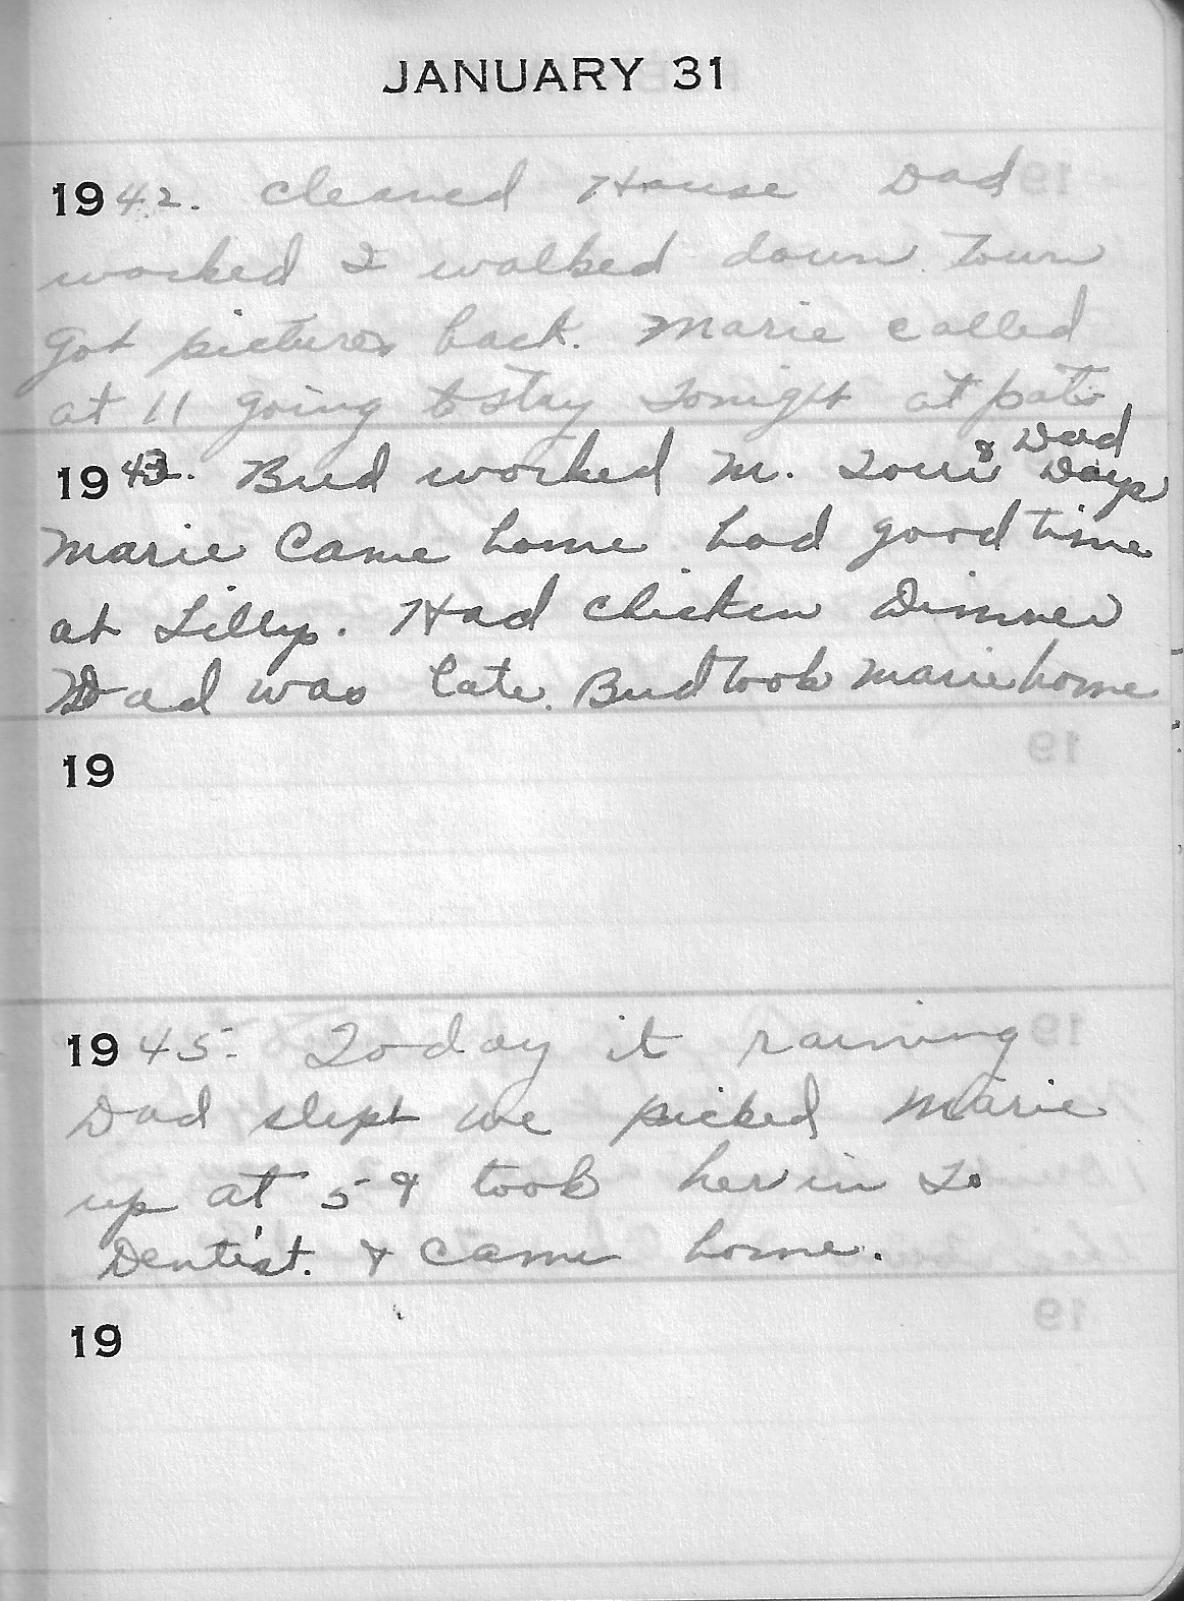 JANUARY 31
1942. Cleaned House Dad
worked I walked down Town
got pictures back. Marie called
at 11 going to stay tonight at pats
1943. Bud worked M. Louis & Dad Days
Marie Came home had good time
at Lillys. Had chicken Dinner
Dad was late. Bud took Marie home
19
1945. Today it raining
Dad slept we picked Marie
up at 5 & took her in To
Dentist. & came home.
19